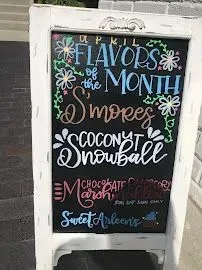 APRIL
FLAVORS
of the
MONTH
S'mores
COCONUT
Snowball
CHOCOLATE
Marsh
Sweet Arleen's